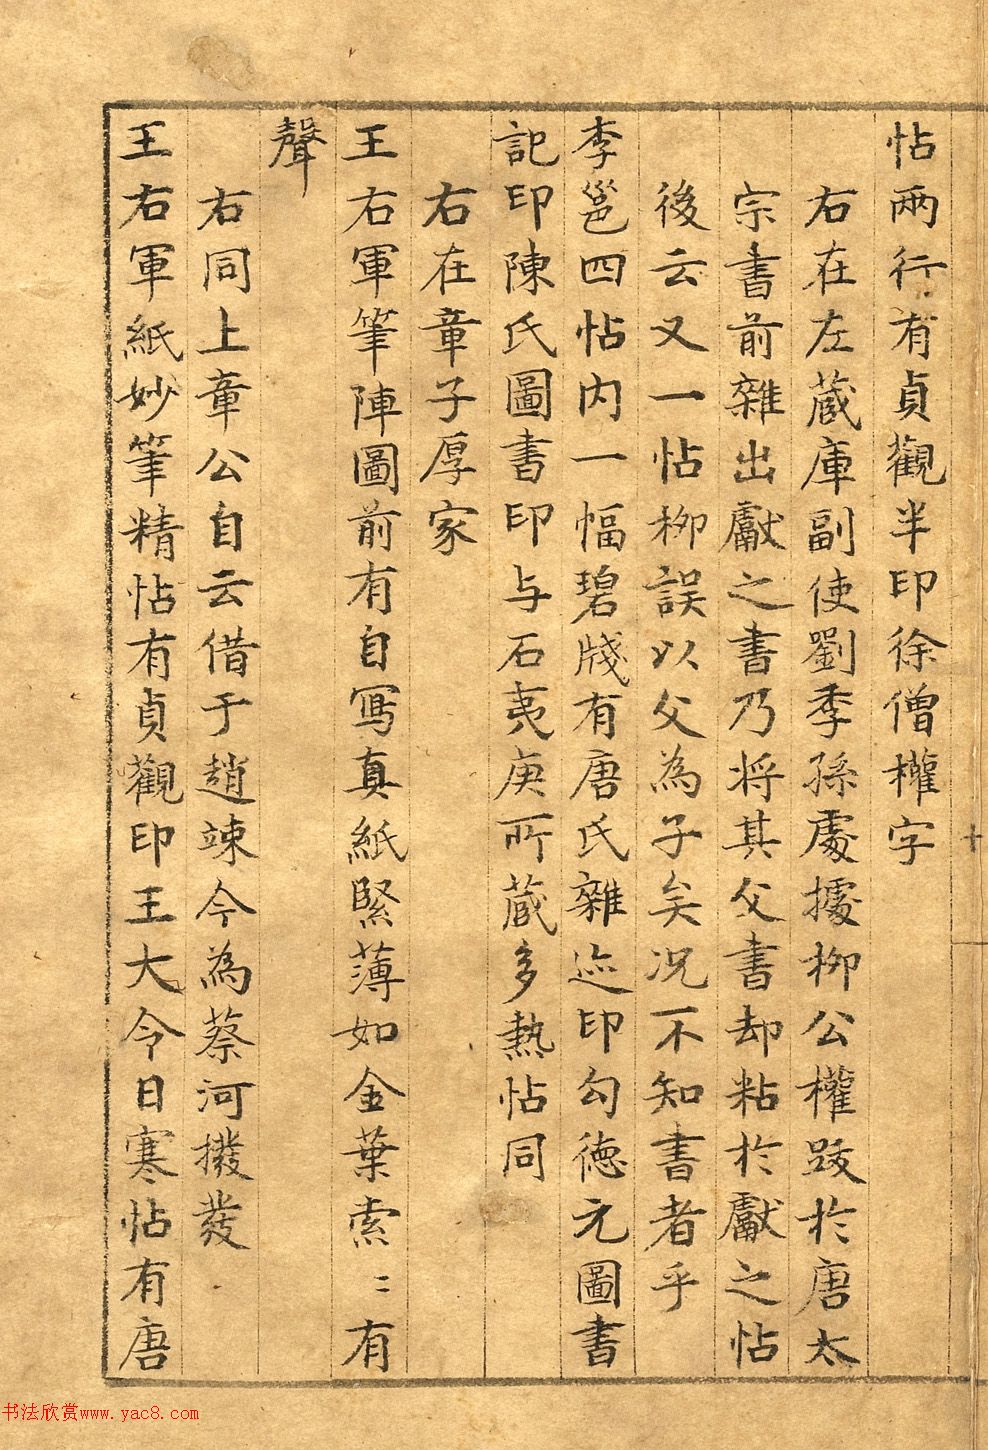 帖兩行有貞觀半印徐僧權字
右在左蔵庫副使劉季孫處據柳公權跋於唐太
宗書前雜出獻之書乃将其父書却粘於獻之帖
後云又一帖柳誤以父為子矣况不知書者乎
李邕四帖内一幅碧牋有唐氏雜迹印勾徳元圖書
記印陳氏圖書印与石夷庚所蔵多熱帖同
右在章子厚家
王右軍筆陣圖前有自寫真紙緊薄如金葉索〻有
聲
右同上章公自云借于趙竦今為蔡河撥發
王右軍紙妙筆精帖有貞觀印王大令日寒帖有唐
十
书法欣赏www.yac8.com